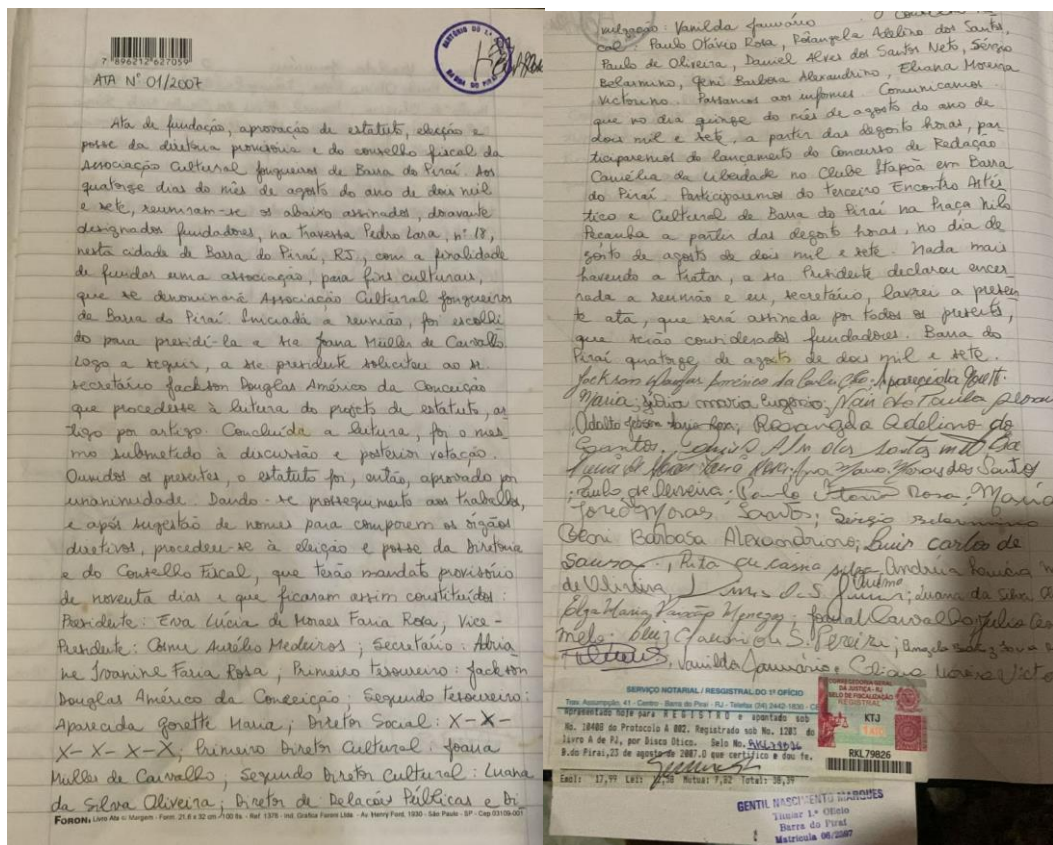 7 896212 627059
ATA Nº 01/2007
Ata de fundação, aprovação de estatuto, eleição e
posse da diretoria provisória e do conselho fiscal da
Associação Cultural Jongueiros de Barra do Piraí. Aos
quatorze dias do mês de agosto do ano de dois mil
e sete, reuniram-se os abaixo assinados, doravante
designados fundadores, na travessa Pedro Lara, nº 18,
nesta cidade de Barra do Piraí, RJ, com a finalidade
de fundar uma associação, para fins culturais,
que se denominará Associação Cultural Jongueiros
de Barra do Piraí. Iniciada a reunião, foi escolhi
do para presidí-la a sra Joana Müller de Carvalho.
Logo a seguir, a sra presidente solicitou ao sr.
secretário Jackson Douglas Américo da Conceição
que procedesse à leitura do projeto de estatuto, ar
tigo por artigo. Concluída a leitura, foi o mes
mo submetido à discussão e posterior votação.
Ouvidos os presentes, o estatuto foi, então, aprovado por
unanimidade. Dando-se prosseguimento aos trabalhos,
e após sugestão de nomes para comporem os órgãos
diretivos, procedeu-se à eleição e posse da Diretoria
e do Conselho Fiscal, que terão mandato provisório
de noventa dias e que ficaram assim constituídos:
Presidente: Eva Lúcia de Moraes Faria Rosa, Vice-
Presidente: Cosme Aurélio Medeiros; Secretário: Adria
ne Ivanine Faria Rosa; Primeiro tesoureiro: Jackson
Douglas Américo da Conceição; Segundo tesoureiro:
Aparecida Gorette Maria; Diretor Social: X-X-
X-X-X-X; Primeiro Diretor Cultural: Joana
Muller de Carvalho; Segundo Diretor Cultural: Luana
da Silva Oliveira; Diretor de Relações Públicas e Di
FORON: Livro Ata c/ Margem - Form. 21,6 x 32 cm - 100 fls - Ref. 1376 - Ind. Gráfica Foroni Ltda - Av. Henry Ford, 1930 - São Paulo - SP - Cep 03109-001
vulgação: Vanilda Januário O Conselho Fis
cal: Paulo Otávio Rosa, Rosangela Adelino dos Santos,
Paulo de Oliveira, Daniel Alves dos Santos Neto, Sérgio
Belarmino, Geni Barbosa Alexandrino, Eliana Moreira
Victorino. Passamos aos informes. Comunicamos
que no dia quinze do mês de agosto do ano de
dois mil e sete, a partir das dezoito horas, par
ticiparemos do lançamento do Concurso de Redação
Camélia da Liberdade no Clube Itapoã em Barra
do Piraí. Participaremos do Terceiro Encontro Artís
tico e Cultural de Barra do Piraí na Praça Nilo
Peçanha a partir das dezoito horas, no dia de
zoito de agosto de dois mil e sete. Nada mais
havendo a tratar, a sra Presidente declarou encer
rada a reunião e eu, secretário, lavrei a presen
te ata, que será assinada por todos os presentes,
que serão considerados fundadores. Barra do
Piraí quatorze de agosto de dois mil e sete.
Jackson Douglas Américo da Conceição; Aparecida Gorett
Maria; Lídia maria Eugênio; Nair de Paula
Rosangela Adelino do
Santos
Ana Maria Moraes dos Santos
; Paulo de Oliveira; Paulo Otavio Rosa; Maria
Moraes Santos; Sérgio Belarmino
Geni Barbosa Alexandrino; Luis Carlos de
Souza; Rita de Cassia Silva Andreia
de Oliveira; Luana da Silva
Elza Maria Menezes; Carvalho; Julio Ces
Melo; S. Pereira;
Vanilda Januário; Eliana Moreira Victo
SERVIÇO NOTARIAL / RESGISTRAL DO 1º OFÍCIO
Trav. Assumpção, 41 - Centro - Barra do Piraí - RJ - Telefax (24) 2442-1836
Apresentado hoje para REGISTRO e apontado sob
No. 10406 do Protocolo A 002. Registrado sob No. 1203 do
livro A de PJ, por Disco Otico. Selo No. RKL79826
B.do Pirai,23 de agosto de 2007.O que certifico e dou fe.
Emol: 17,99 Lei: Mutua: 7,82 Total:
CORREGEDORIA GERAL
DA JUSTIÇA - RJ
SELO DE FISCALIZAÇÃO
REGISTRAL
KTJ
RKL79826
GENTIL NASCIMENTO MARQUES
Titular 1.º Ofício
Barra do Piraí